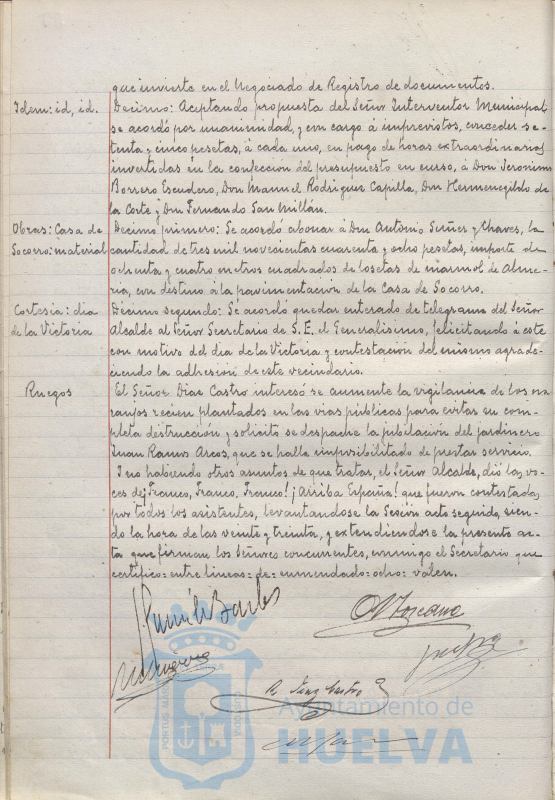 que invierte en el Negociado de Registro de documentos.
Idem: id, id.
Decimo: Aceptando propuesta del Señor Interventor Municipal
se acordó por unanimidad, y con cargo á imprevistos, conceder se-
tenta y cinco pesetas, á cada uno, en pago de horas extraordinarias
invertidas en la confeccion del presupuesto en curso, á Don Jeronimo
Borrero Escudero, Don Manuel Rodriguez Capilla, Don Hermenegildo de
la Corte y Don Fernando San Millán.
Obras: Casa de
Socorro: material
Decimo primero: Se acordó abonar á Don Antonio Suñer y Chaves, la
cantidad de tres mil novecientas cuarenta y ocho pesetas, importe de
ochenta y cuatro metros cuadrados de losetas de marmol de Alme-
ria, con destino á la pavimentacion de la Casa de Socorro.
Cortesia: dia
de la Victoria
Decimo segundo: Se acordó quedar enterado de telegrama del Señor
Alcalde al Señor Secretario de S. E. el Generalisimo, felicitando á este
con motivo del dia de la Victoria y contestacion del mismo agrade-
ciendo la adhesion de este vecindario.
Ruegos
El Señor Diaz Castro interesó se aumente la vigilancia de los na-
ranjos recien plantados en las vias públicas para evitar su com-
pleta destruccion y solicitó se despache la jubilacion del jardinero
Juan Ramos Arcos, que se halla imposibilitado de prestar servicio.
Y no habiendo otros asuntos de que tratar, el Señor Alcalde, dió las vo-
ces de ¡Franco, Franco, Franco! ¡Arriba España! que fueron contestadas
por todos los asistentes, levantandose la Sesión acto seguido, sien-
do la hora de las veinte y treinta, y extendiendose la presente ac-
ta que firman los Señores concurrentes, conmigo el Secretario que
certifico = entre lineas = de = enmendado = ocho = valen.
Ayuntamiento de
HUELVA